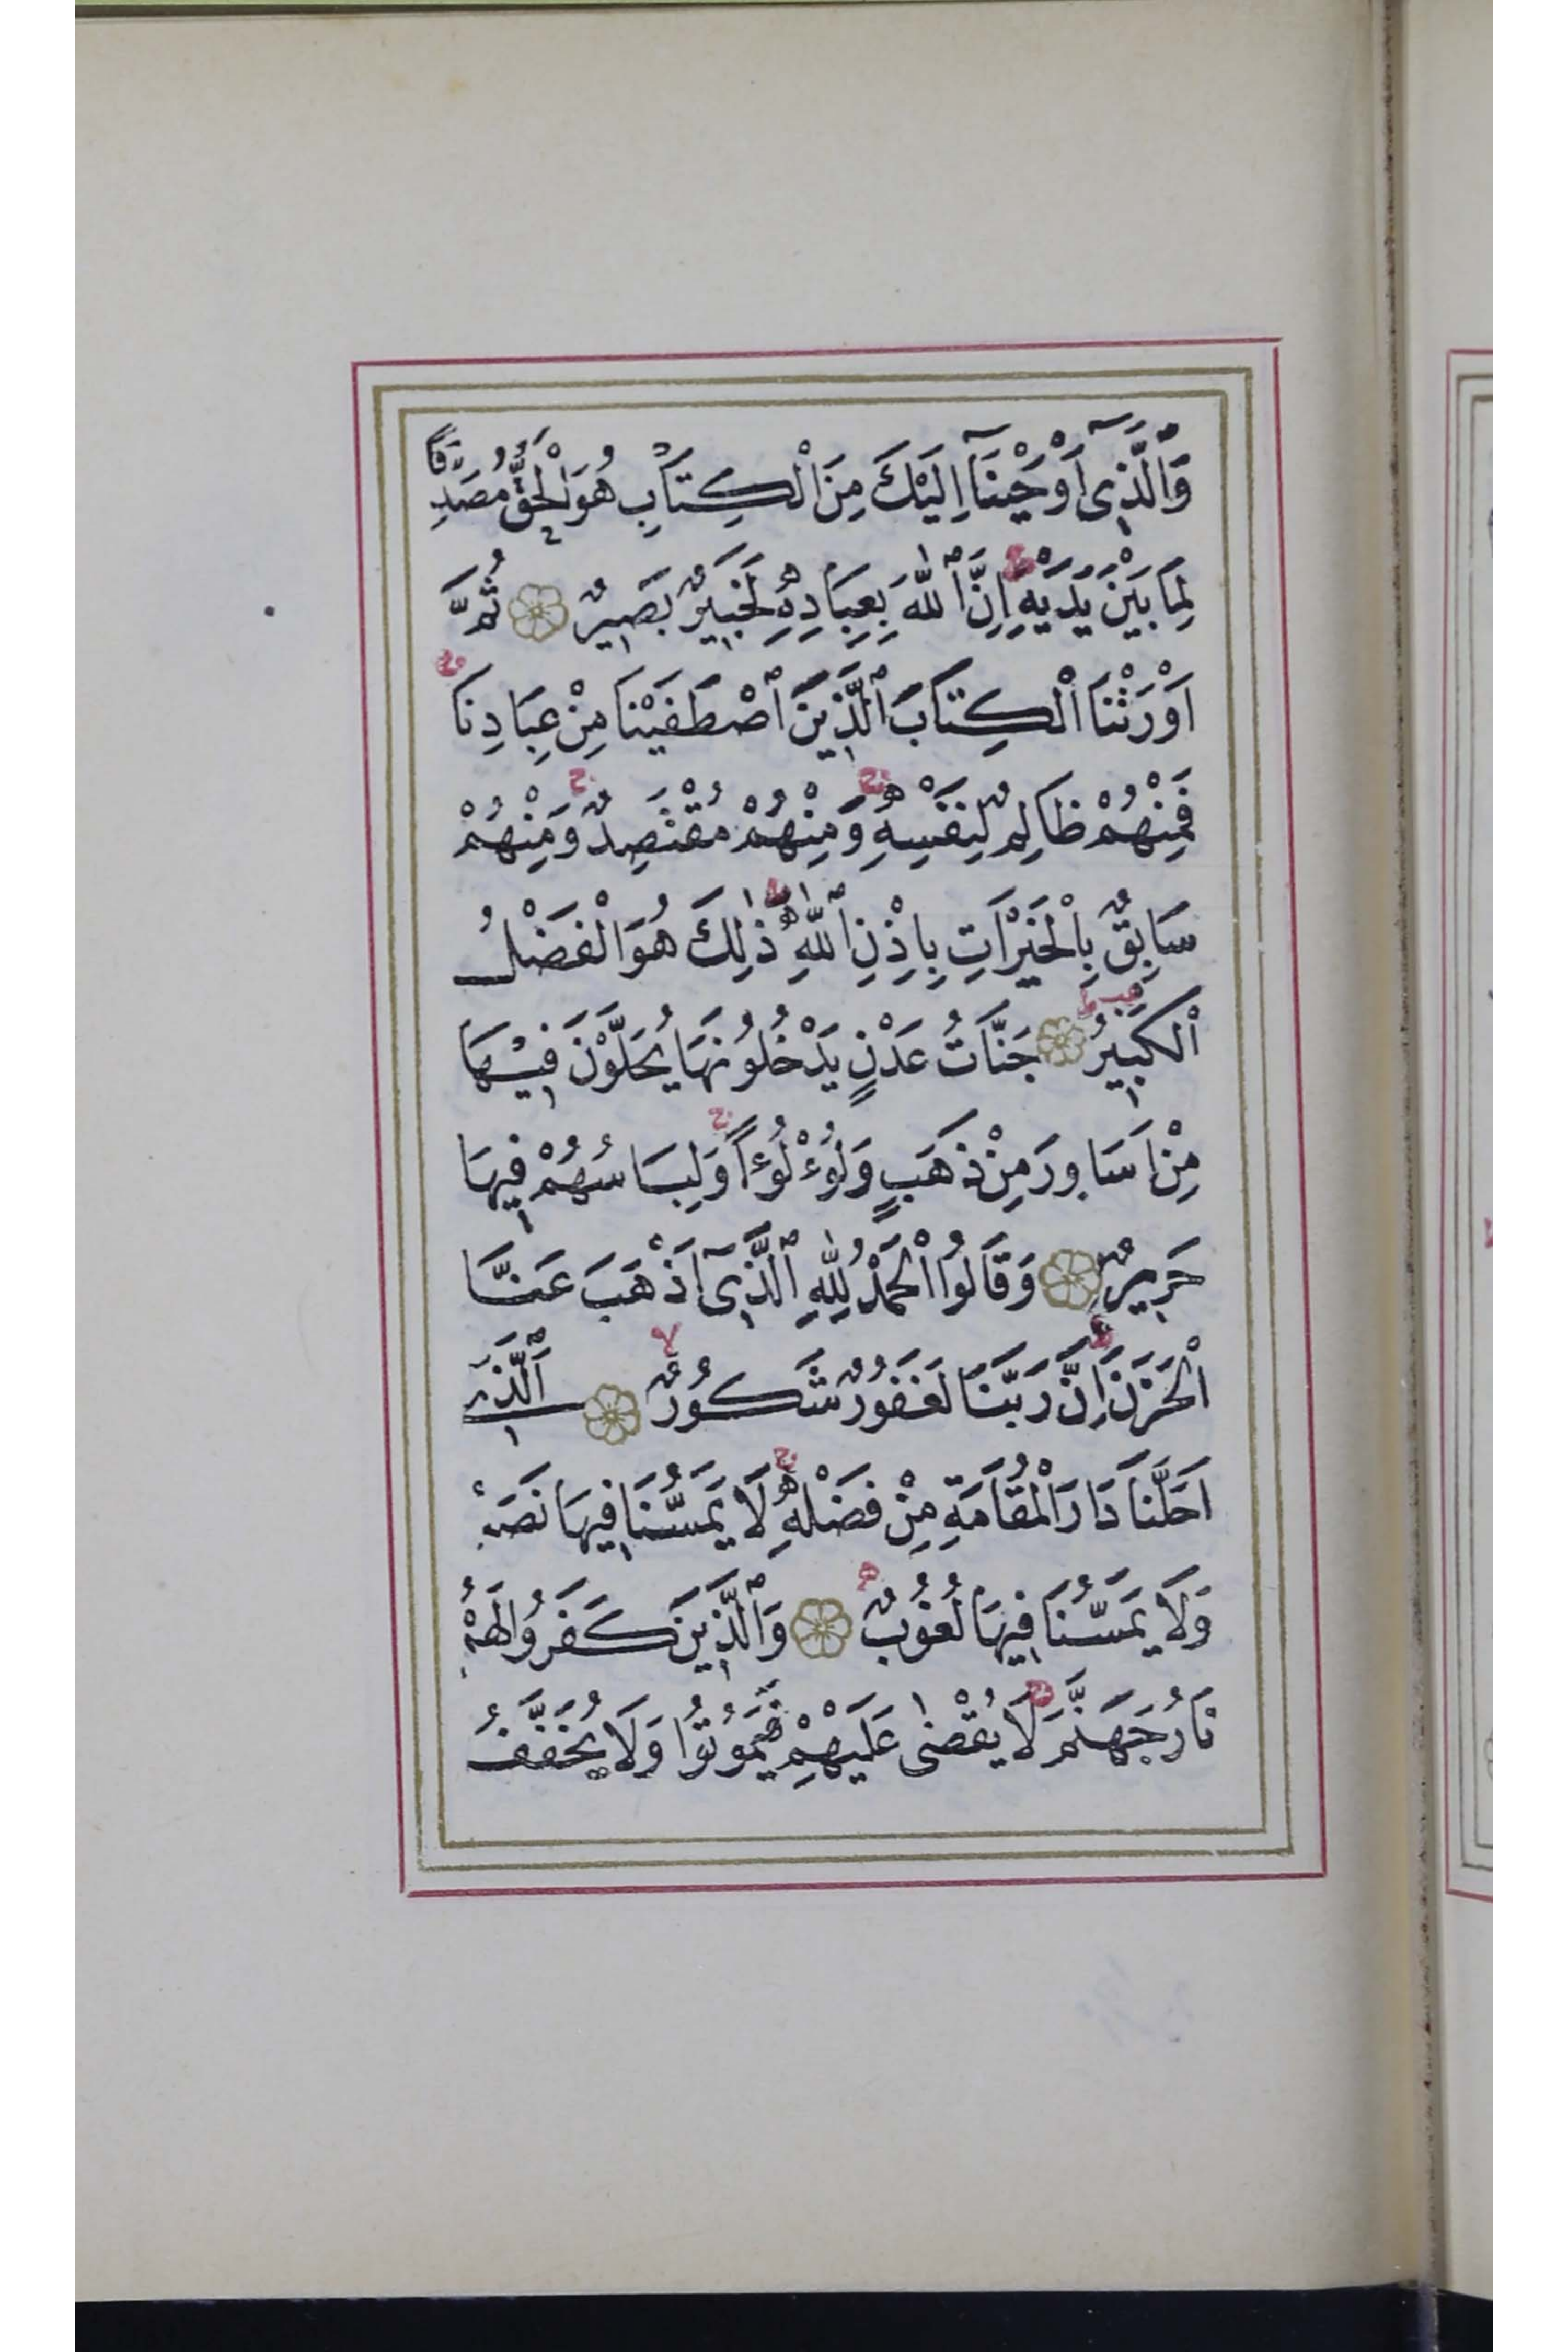 وَٱلَّذ۪ٓى اَوْحَيْنَٓا اِلَيْكَ مِنَ الْكِتَابِ هُوَ الْحَقُّ مُصَدِّقًا
لِمَا بَيْنَ يَدَيْهِۜ اِنَّ ٱللّٰهَ بِعِبَادِه۪ لَخَب۪يرٌ بَص۪يرٌ ثُمَّ
اَوْرَثْنَا الْكِتَابَ ٱلَّذ۪ينَ ٱصْطَفَيْنَا مِنْ عِبَادِنَاۚ
فَمِنْهُمْ ظَالِمٌ لِنَفْسِه۪ۚ وَمِنْهُمْ مُقْتَصِدٌۚ وَمِنْهُمْ
سَابِقٌ بِالْخَيْرَاتِ بِاِذْنِ ٱللّٰهِۜ ذٰلِكَ هُوَ الْفَضْلُ
الْكَب۪يرُۜ جَنَّاتُ عَدْنٍ يَدْخُلُونَهَا يُحَلَّوْنَ ف۪يهَا
مِنْ اَسَاوِرَ مِنْ ذَهَبٍ وَلُؤْلُؤًاۚ وَلِبَاسُهُمْ ف۪يهَا
حَر۪يرٌ وَقَالُوا الْحَمْدُ لِلّٰهِ ٱلَّذ۪ٓى اَذْهَبَ عَنَّا
الْحَزَنَۜ اِنَّ رَبَّنَا لَغَفُورٌ شَكُورٌۙ ٱلَّذ۪ى
اَحَلَّنَا دَارَ الْمُقَامَةِ مِنْ فَضْلِه۪ۚ لَا يَمَسُّنَا ف۪يهَا نَصَبٌ
وَلَا يَمَسُّنَا ف۪يهَا لُغُوبٌ وَٱلَّذ۪ينَ كَفَرُوا لَهُمْ
نَارُ جَهَنَّمَۚ لَا يُقْضٰى عَلَيْهِمْ فَيَمُوتُوا وَلَا يُخَفَّفُ